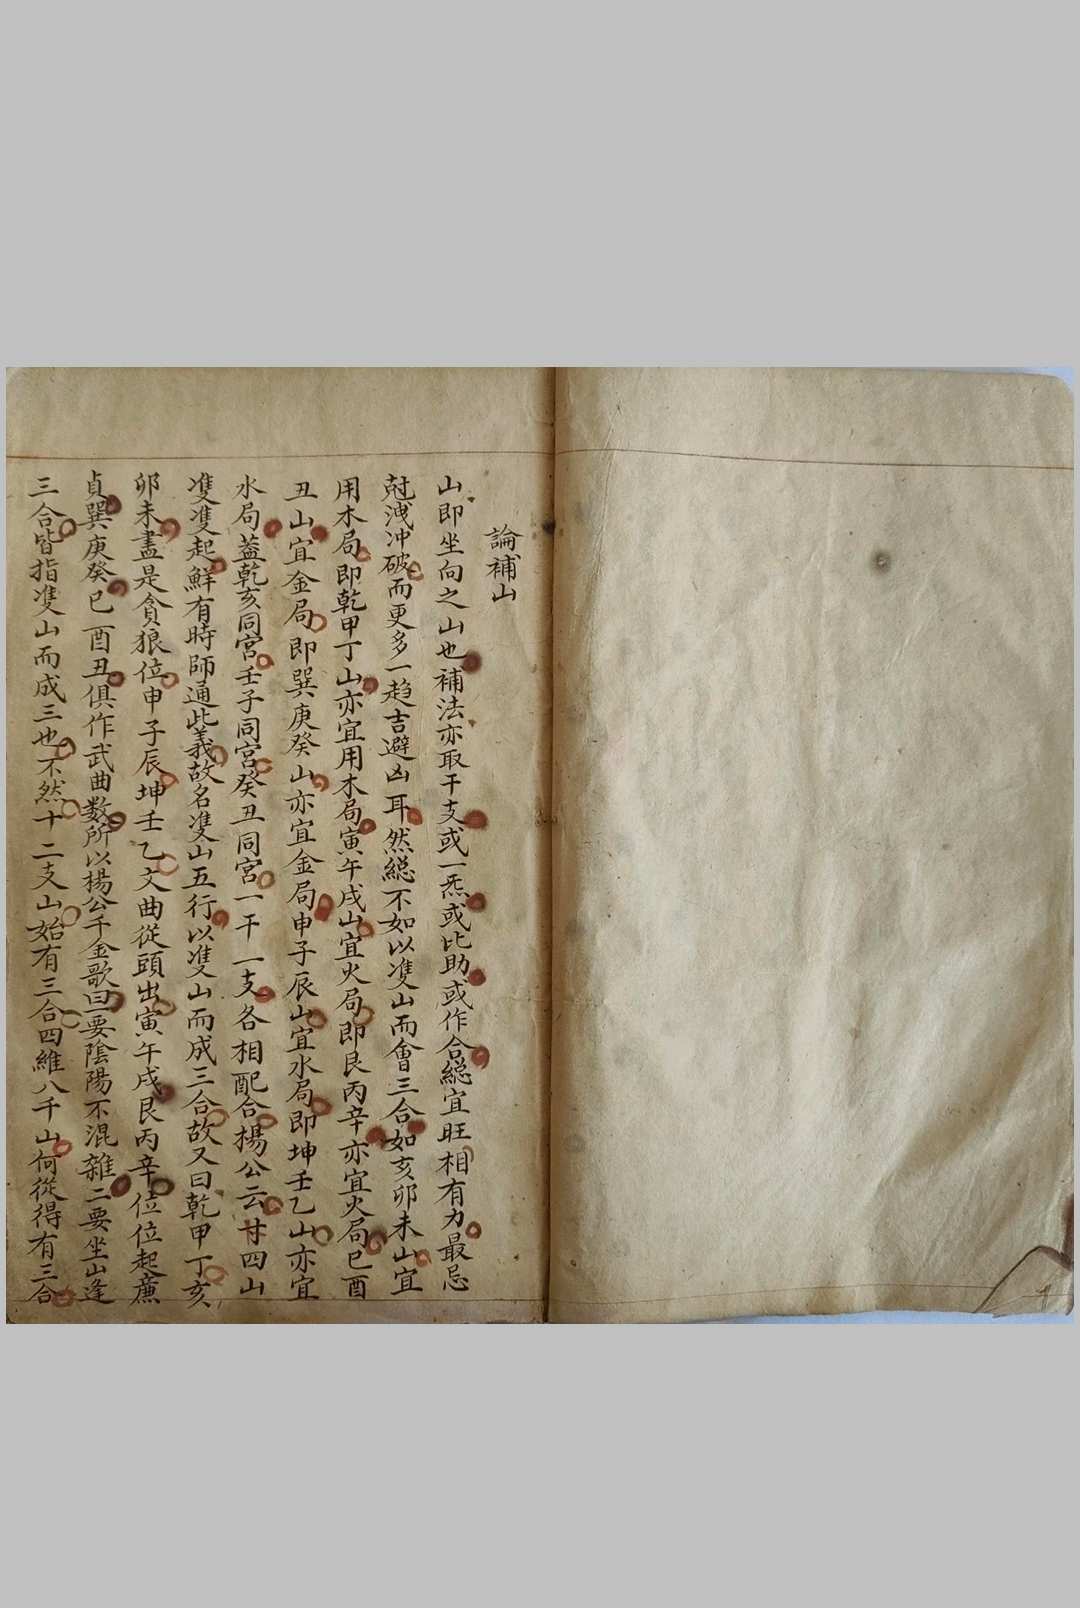 論補山
山即坐向之山也補法亦取干支或一炁或比助或作合縂宜旺相有力最忌
尅洩冲破而更多一趋吉避凶耳然縂不如以䨇山而會三合如亥卯未山宜
用木局即乾甲丁山亦宜用木局寅午戌山宜火局即艮丙辛亦宜火局巳酉
丑山宜金局即巽庚癸山亦宜金局申子辰山宜水局即坤壬乙山亦宜
水局蓋乾亥同宮壬子同宮癸丑同宮一干一支各相配合楊公云廿四山
䨇䨇起鮮有時師通此義故名䨇山五行以䨇山而成三合故又曰乾甲丁亥
卯未盡是貪狼位申子辰坤壬乙文曲從頭出寅午戌艮丙辛位位起廉
貞巽庚癸巳酉丑俱作武曲数所以楊公千金歌曰一要陰陽不混雜二要坐山逢
三合皆指䨇山而成三也不然十二支山始有三合四維八千山何從得有三合